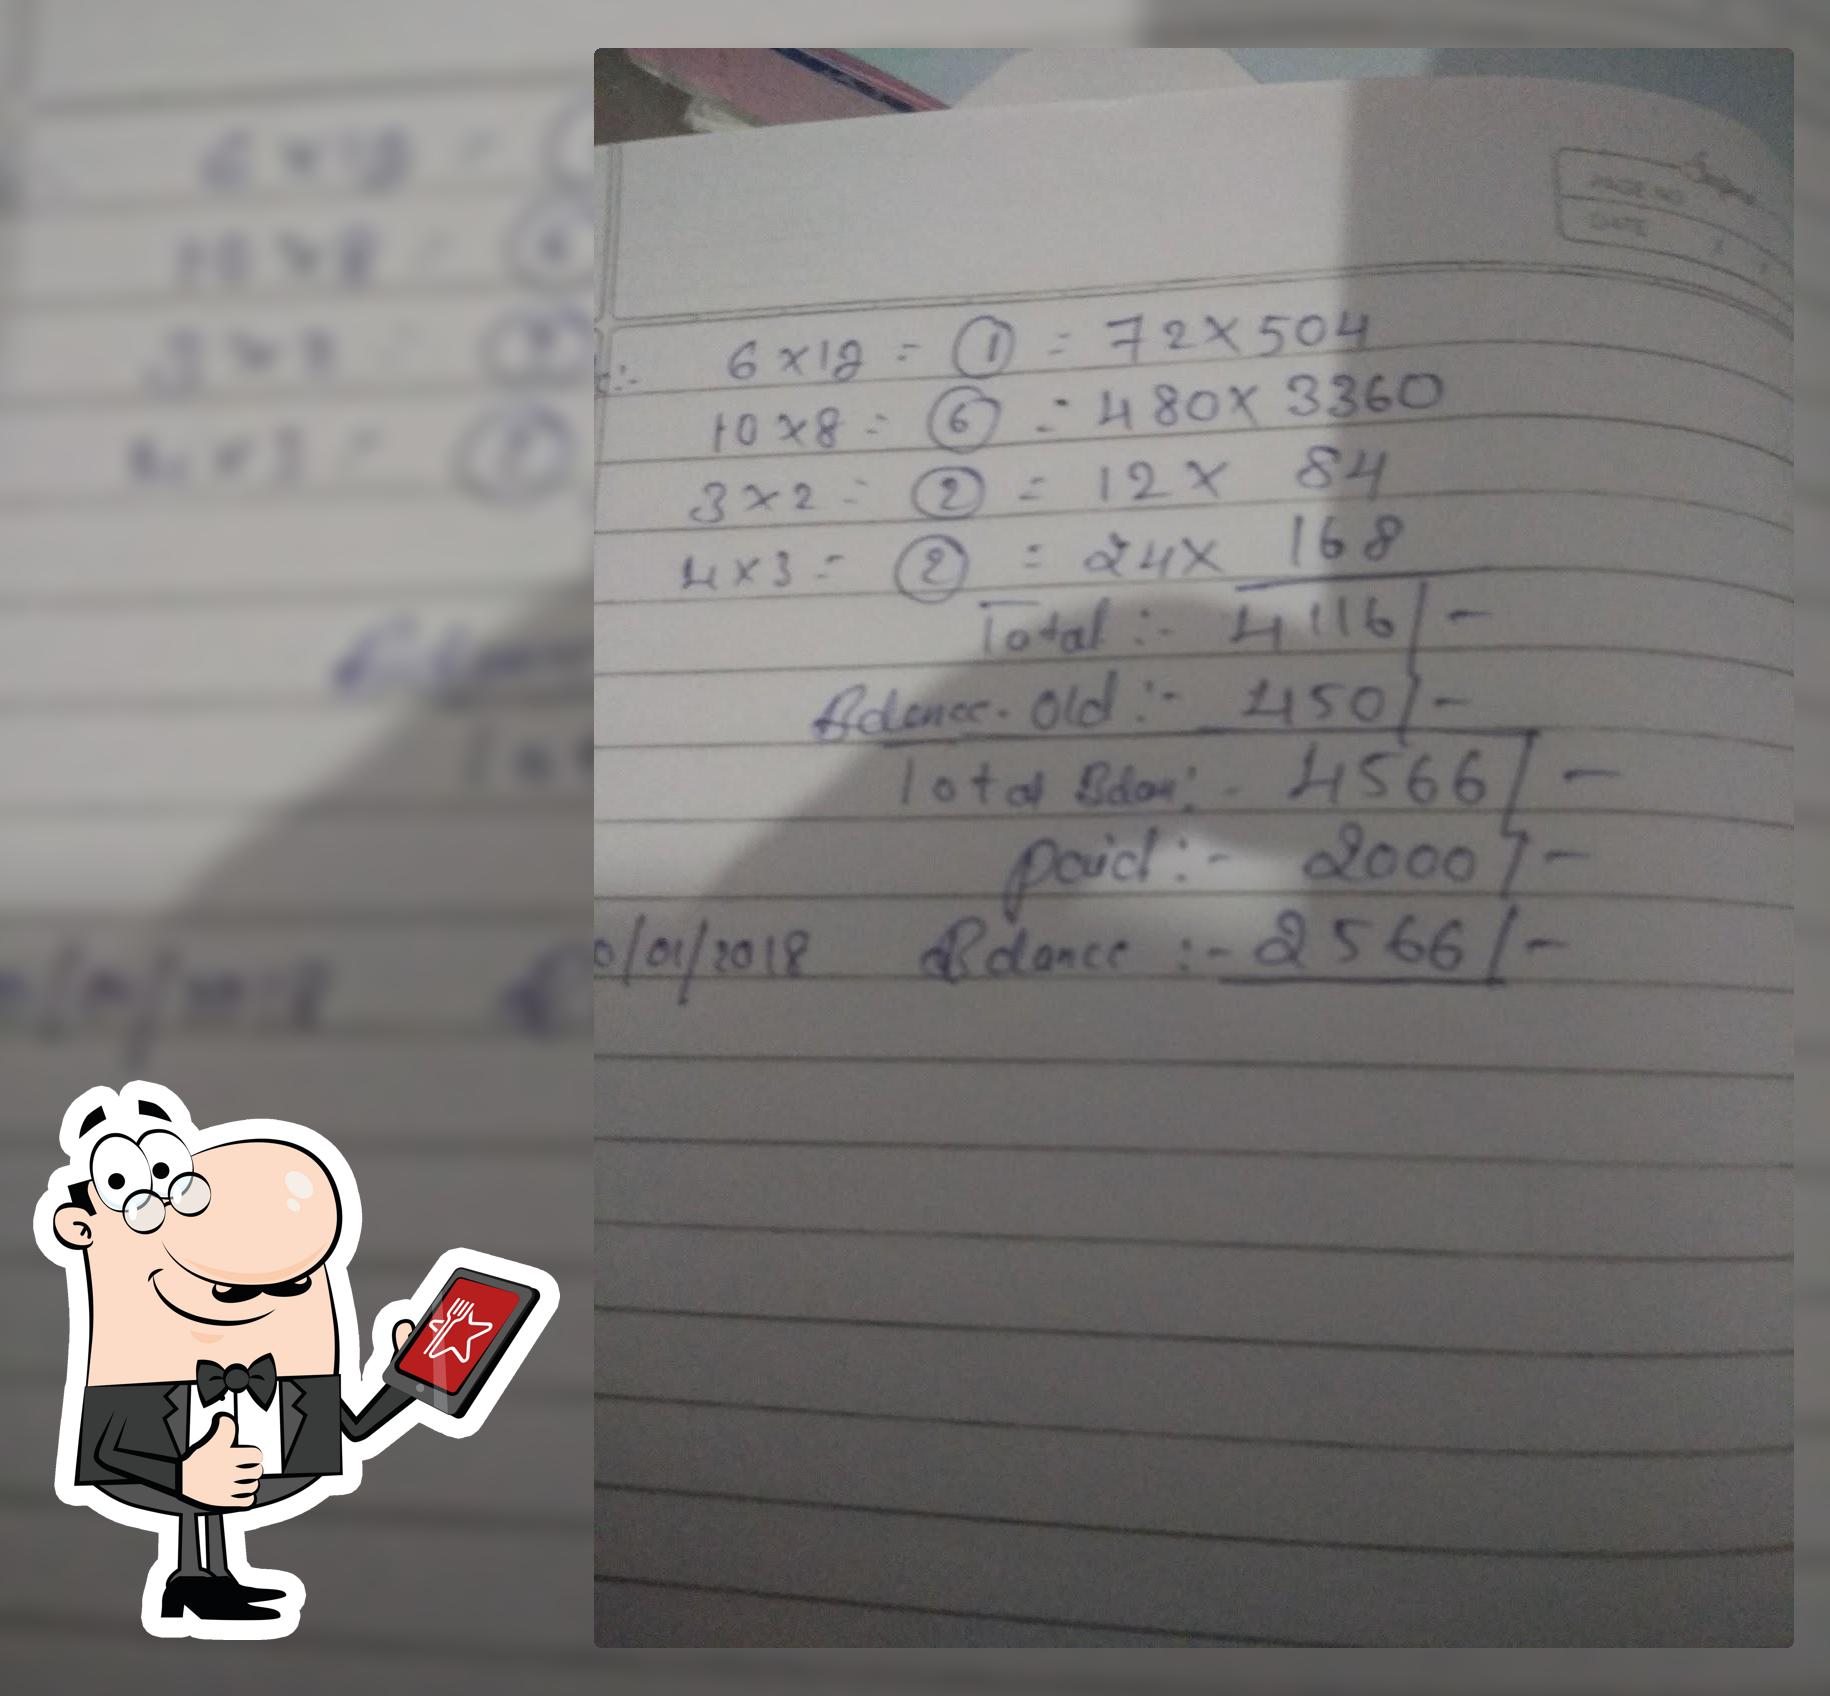 PAGE NO
DATE
6 x 12 = 1 = 72 x 504
10 x 8 = 6 = 480 x 3360
3 x 2 = 2 = 12 x 84
4 x 3 = 2 = 24 x 168
Total :- 4116/-
Balance. Old :- 450/-
Total Balan :- 4566/-
paid :- 2000/-
0/01/2018 Balance :- 2566/-